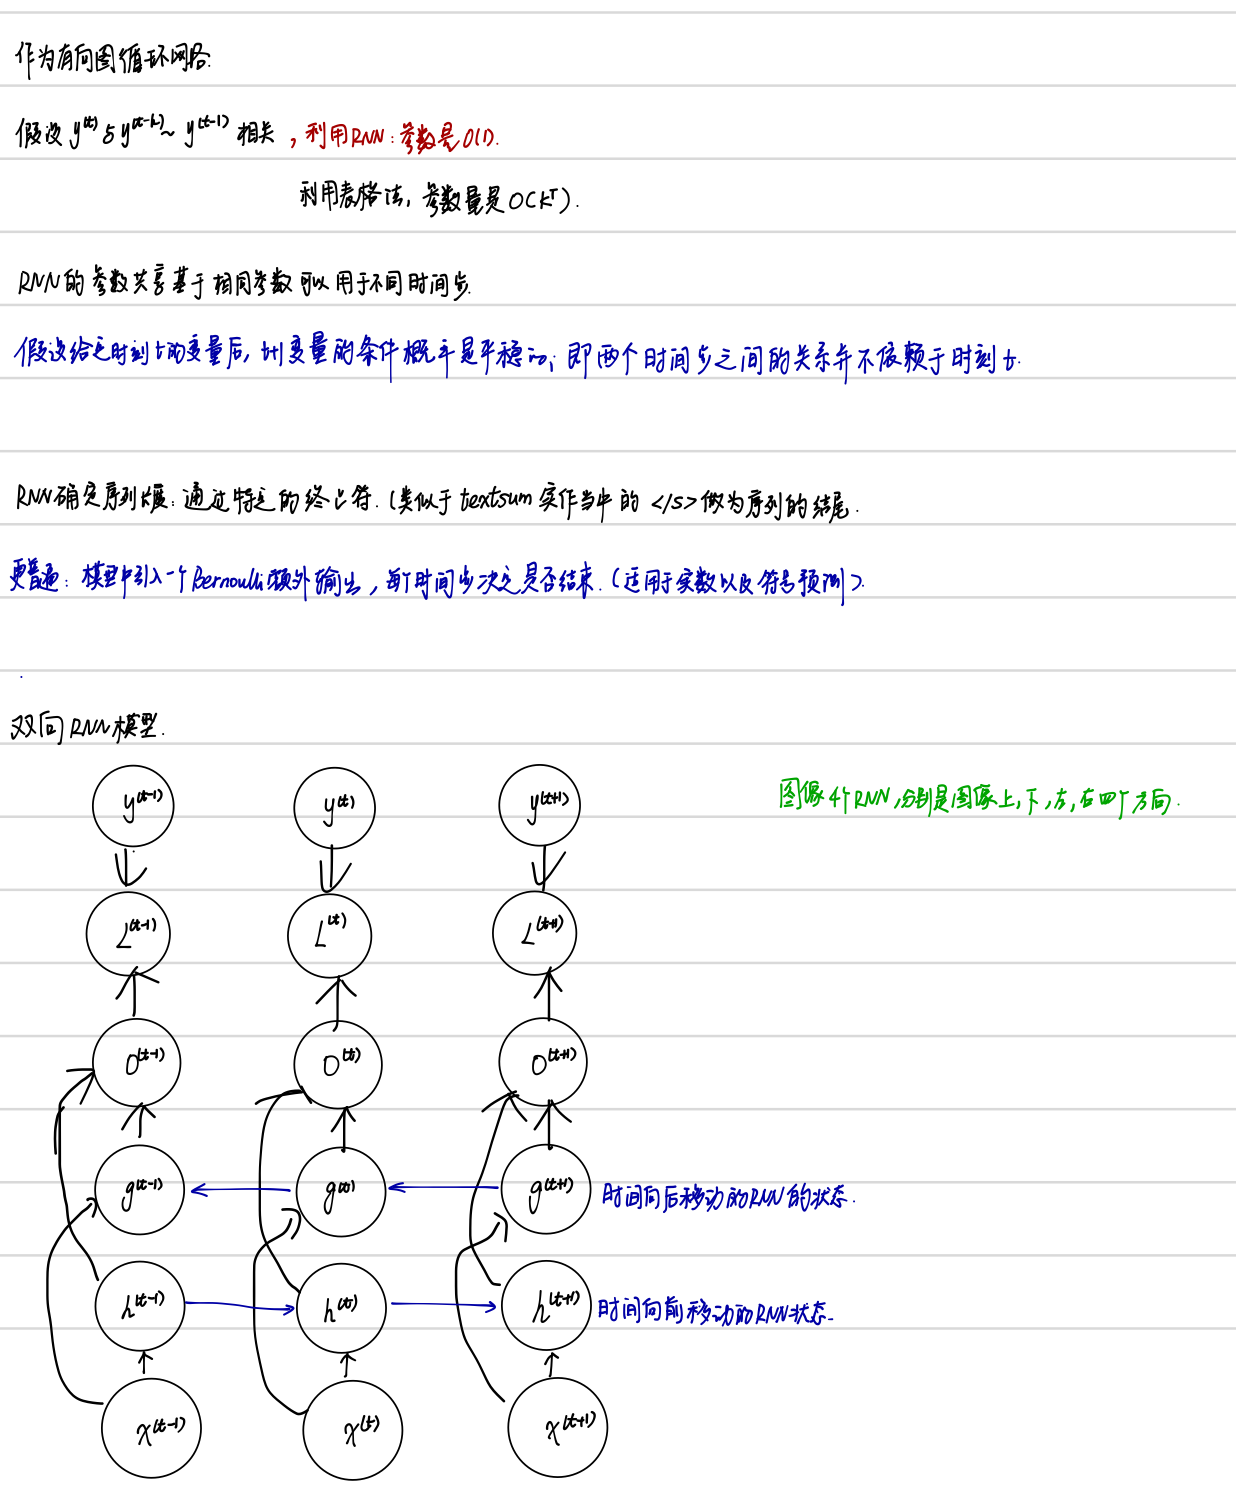 作为有向图循环网络.
假设 y^(t) 与 y^(t-k) ~ y^(t-1) 相关，利用RNN：参数是O(1).
利用表格法，参数量是O(k^T).
RNN的参数共享基于相同参数可以用于不同时间步.
假设给定时刻t的变量后，t+1变量的条件概率是平稳的，即两个时间步之间的关系并不依赖于时刻t.
RNN确定序列长度：通过特定的终止符.（类似于textsum实作当中的 </s> 做为序列的结尾.
更普遍：模型中引入一个Bernoulli额外输出，每个时间步决定是否结束.（适用于实数以及符号预测）.
双向RNN模型.
y^(t-1) y^(t) y^(t+1)
图像4个RNN，分别是图像上，下，左，右四个方向.
L^(t-1) L^(t) L^(t+1)
O^(t-1) O^(t) O^(t+1)
g^(t-1) g^(t) g^(t+1) 时间向后移动的RNN的状态.
h^(t-1) h^(t) h^(t+1) 时间向前移动的RNN状态.
x^(t-1) x^(t) x^(t+1)